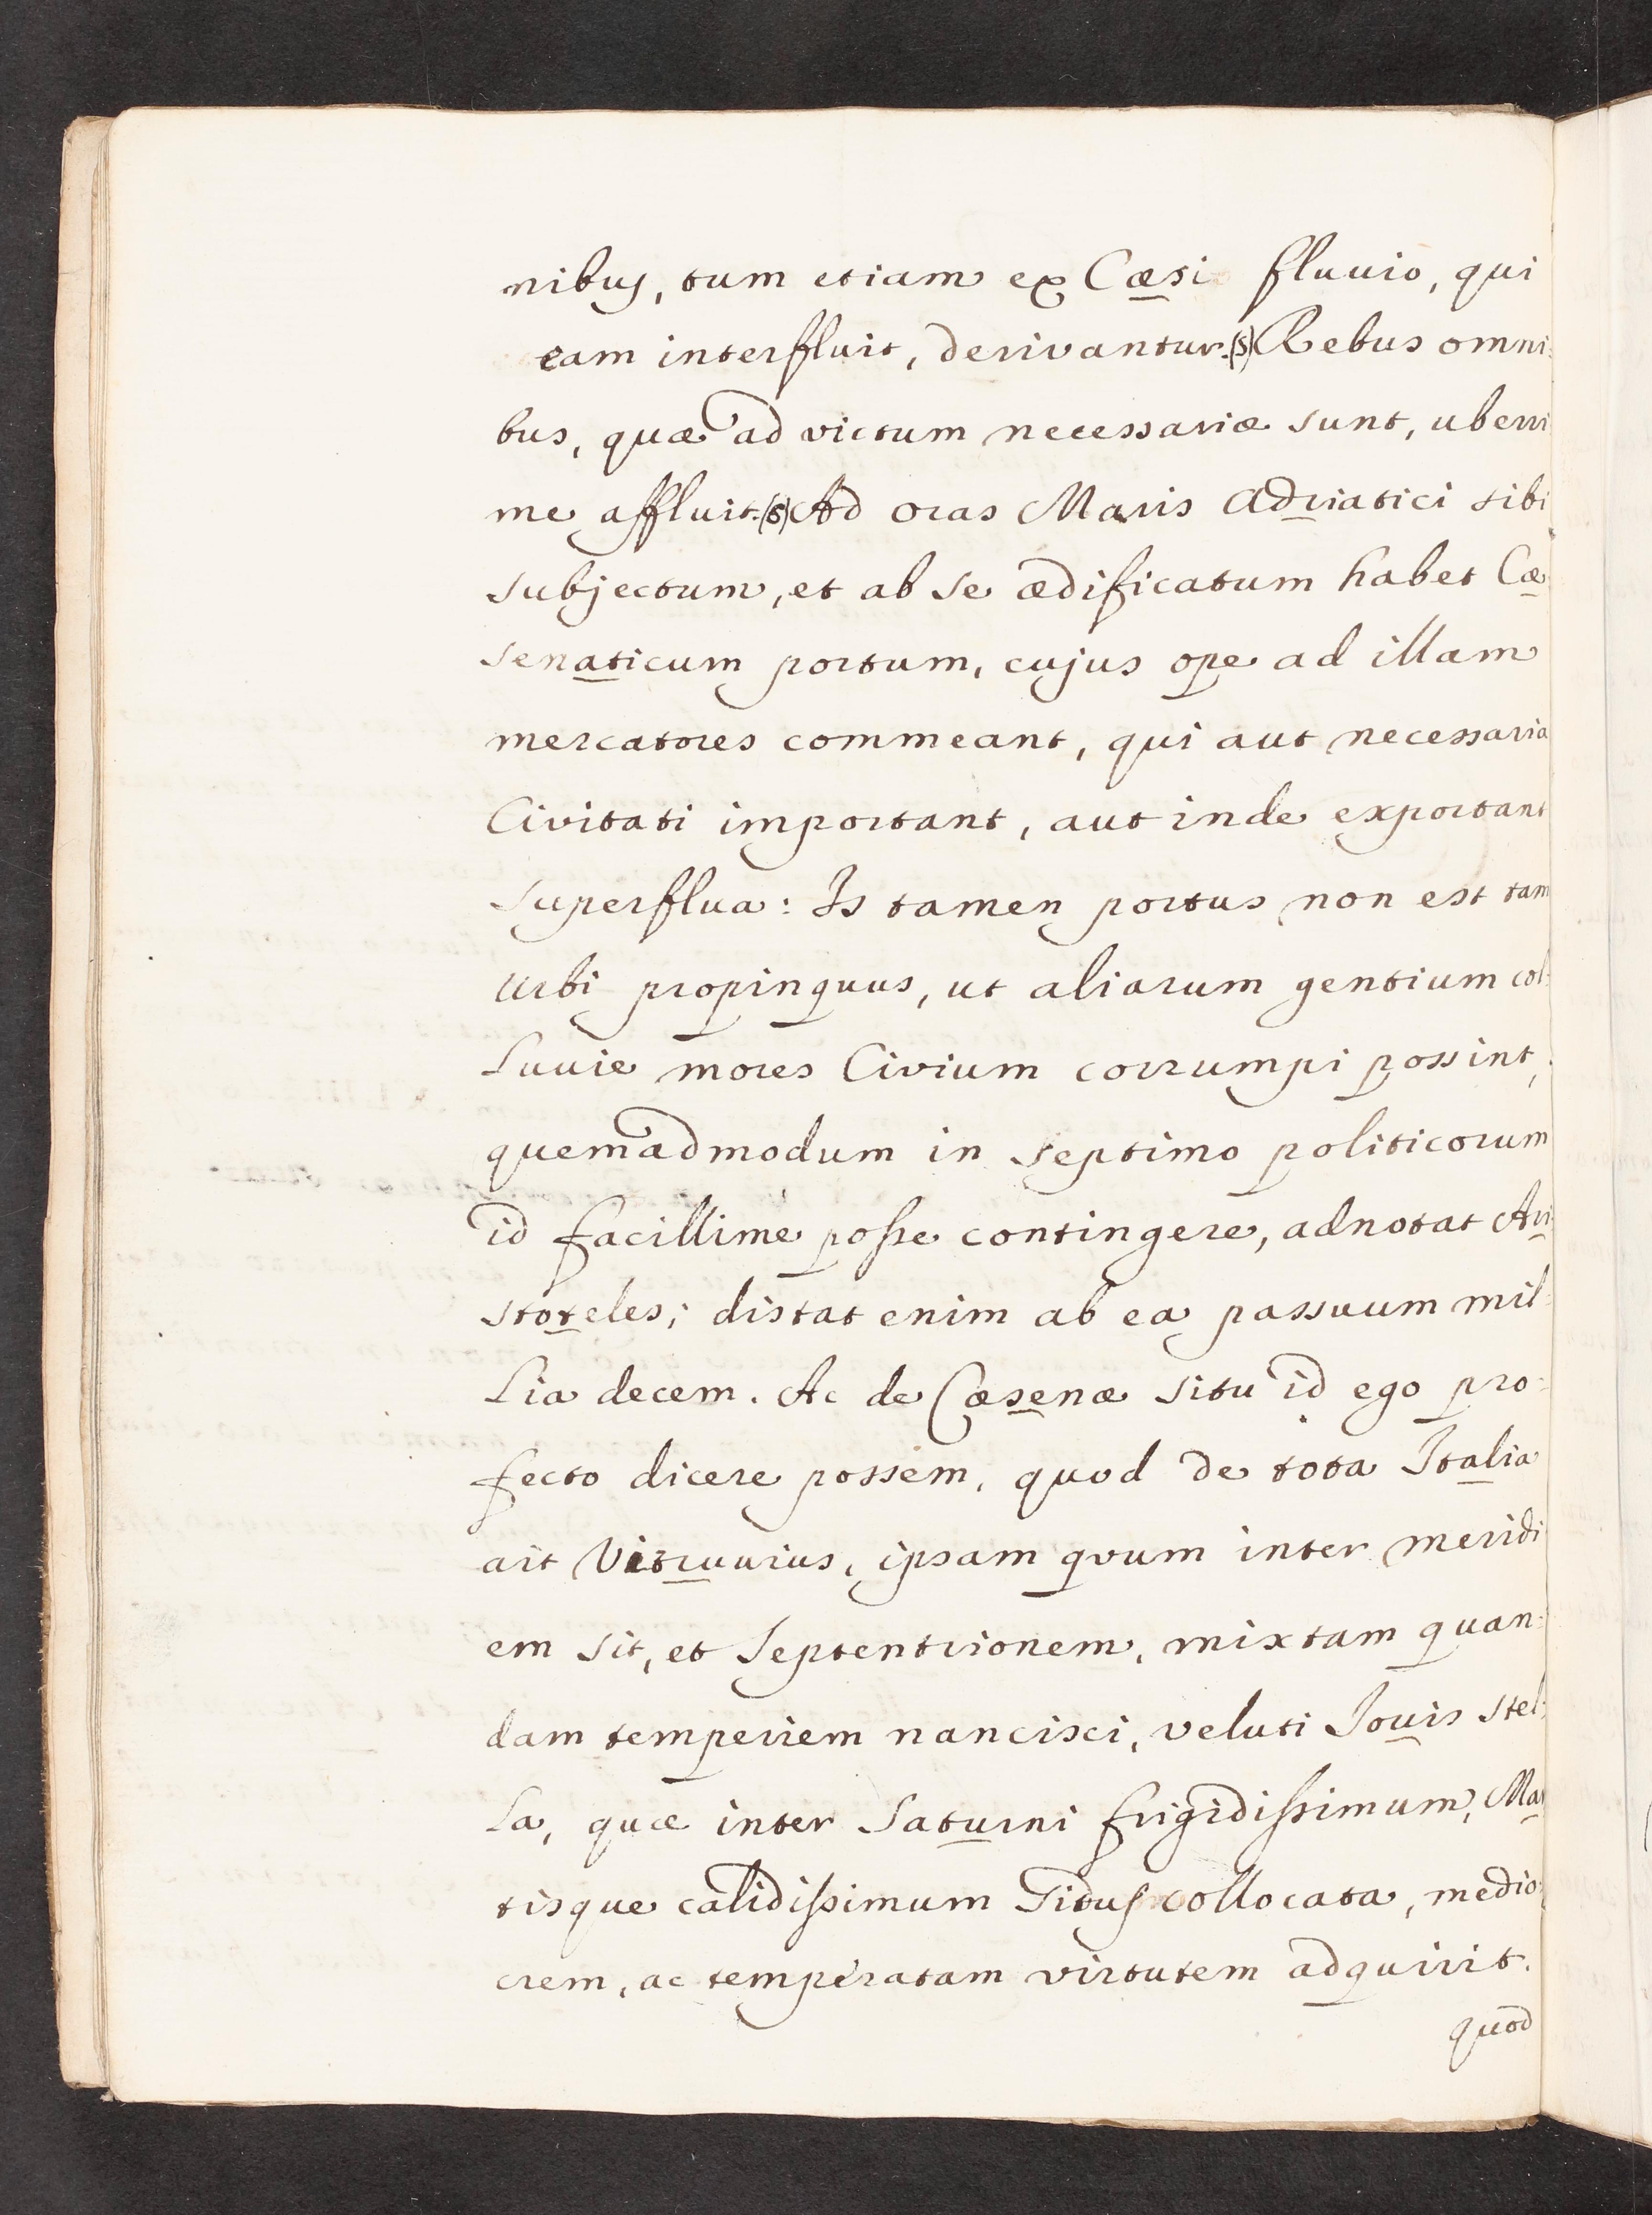 nibus, tum etiam ex Cæsi fluvio, qui
eam interfluit, derivantur.(5) Rebus omni:
bus, quæ ad victum necessariæ sunt, uberri
me affluit.(6) Ad oras Maris Adriatici sibi
subjectum, et ab se ædificatum habet Cæ
senaticum portum, cujus ope ad illam
mercatores commeant, qui aut necessaria
Civitati important, aut inde exportant
superflua: Is tamen portus non est tam
Urbi propinquus, ut aliarum gentium col:
luuie mores Civium corrumpi possint,
quemadmodum in septimo politicorum
id facillime posse contingere, adnotat Ari
stoteles; distat enim ab ea passuum mil:
lia decem. Ac de Cæsenæ situ id ego pro:
fecto dicere possem, quod de tota Italia
ait Vitruuius, ipsam qvum inter meridi
em sit, et Septentrionem, mixtam quan:
dam temperiem nancisci, veluti Jouis stel:
la, quæ inter Saturni frigidissimum, Mar
tisque calidissimum Sidus collocata, medio:
crem, ac temperatam virtutem adquirit.
quod